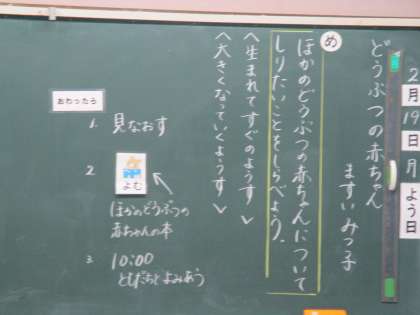 2月19日月よう日
どうぶつの赤ちゃん
ますいみつ子
め
ほかのどうぶつの赤ちゃんについて
しりたいことをしらべよう。
＜生まれてすぐのようす＞
＜大きくなっていくようす＞
おわったら
1. 見なおす
2. よむ
ほかのどうぶつの
赤ちゃんの本
3. 10:00
ともだちとよみあう